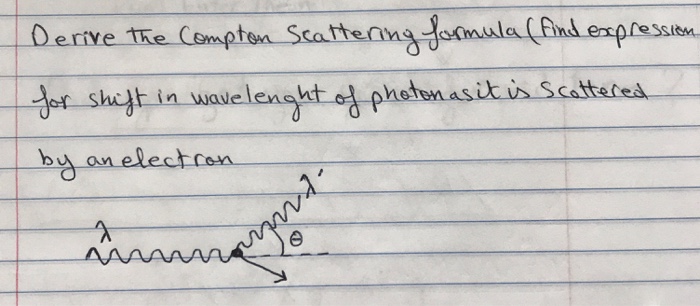 Derive the Compton Scattering formula (find expression
for shift in wavelenght of photon as it is Scattered
by an electron
λ'
λ
θ